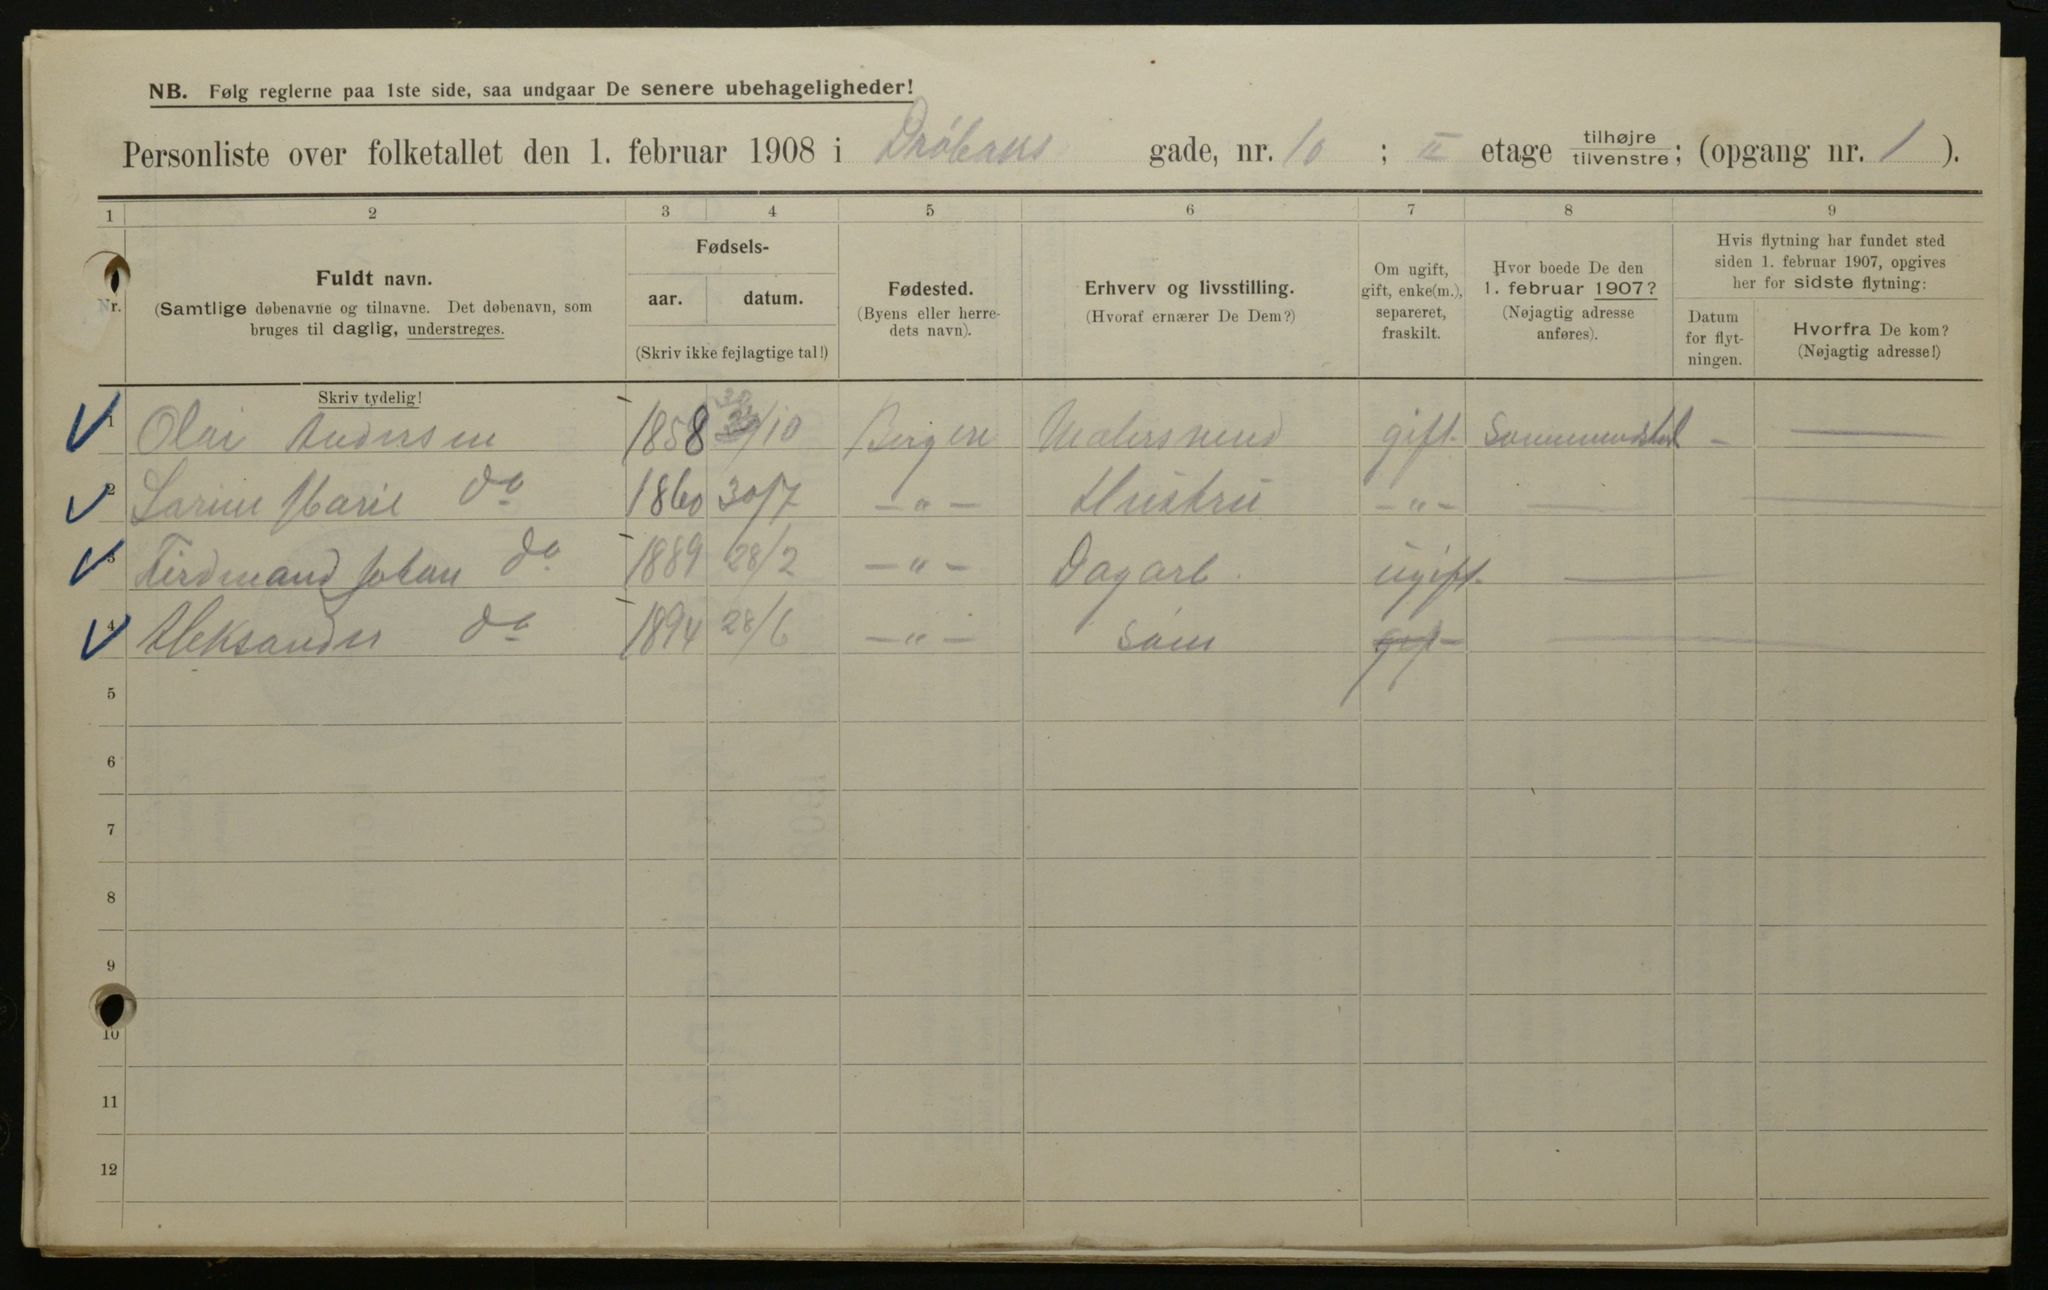 NB. Følg reglerne paa 1ste side, saa undgaar De senere ubehageligheder!
Personliste over folketallet den 1. februar 1908 i Drøbaks gade, nr. 10 ; II etage tilhøjre tilvenstre; (opgang nr. 1 ).
1 2 3 4 5 6 7 8 9
Nr.
Fuldt navn.
(Samtlige døbenavne og tilnavne. Det døbenavn, som
bruges til daglig, understreges.
Fødsels-
aar. datum.
(Skriv ikke fejlagtige tal!)
Fødested.
(Byens eller herre-
dets navn).
Erhverv og livsstilling.
(Hvoraf ernærer De Dem?)
Om ugift,
gift, enke(m.),
separeret,
fraskilt.
Hvor boede De den
1. februar 1907?
(Nøjagtig adresse
anføres).
Hvis flytning har fundet sted
siden 1. februar 1907, opgives
her for sidste flytning:
Datum
for flyt-
ningen.
Hvorfra De kom?
(Nøjagtig adresse!)
Skriv tydelig!
1 Olai Andersen 1858 30/10 Bergen Malersvend gift Sammested –
2 Marie do 1860 30/7 – " – Hustru – " –
3 Ferdinand Johan do 1889 28/2 – " – Dagarb. ugift
4 Aleksander do 1894 28/6 – " – Søn gift
5
6
7
8
9
10
11
12